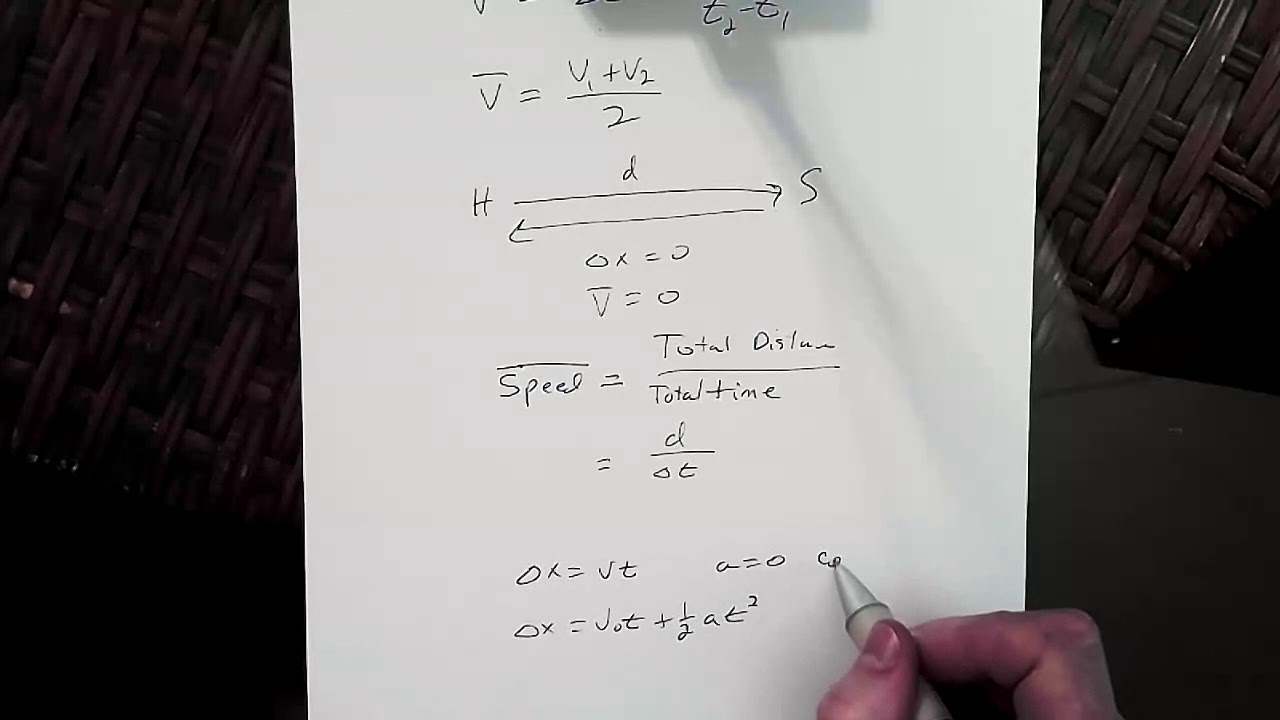 t₂-t₁
V̅ = (V₁+V₂)/2
d
H S
Δx = 0
V̅ = 0
Speed = Total / Total time
= d/Δt
Δx = vt a=0
Δx = v₀t + ½at²